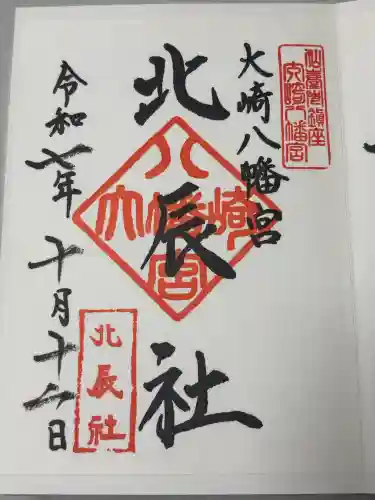 仙臺市鎮座
大崎八幡宮
大崎八幡宮
北辰社
八幡宮
大崎
北辰社
令和七年十月十二日